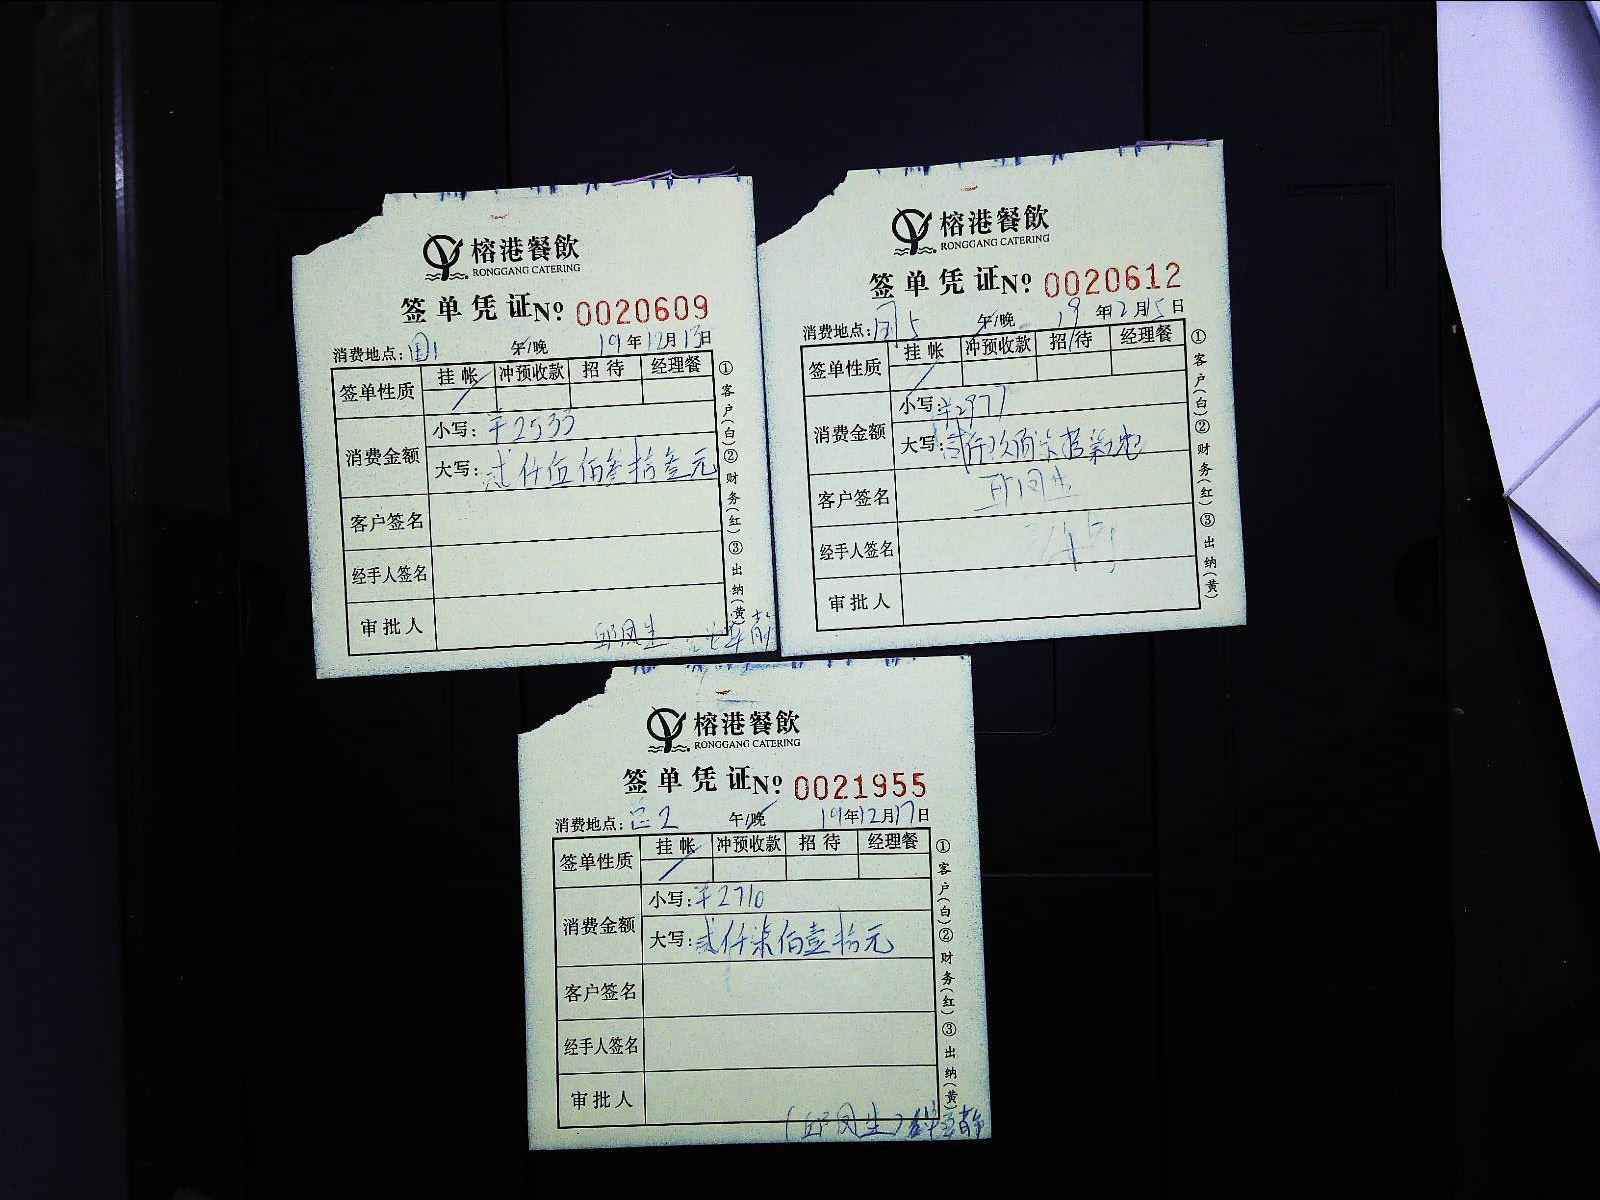 榕港餐飲
RONGGANG CATERING
签单凭证№ 0020609
消费地点: 1 午/晚 19年12月13日
签单性质 挂帐 冲预收款 招待 经理餐
消费金额 小写: ¥2533
大写: 贰仟伍佰叁拾叁元
客户签名
经手人签名
审批人
邱凤生
①客户(白)②财务(红)③出纳(黄)
榕港餐飲
RONGGANG CATERING
签单凭证№ 0020612
消费地点: 5 午/晚 19年12月15日
签单性质 挂帐 冲预收款 招待 经理餐
消费金额 小写: ¥2977
大写: 贰仟玖佰柒拾柒元
客户签名 邱凤生
经手人签名
审批人
①客户(白)②财务(红)③出纳(黄)
榕港餐飲
RONGGANG CATERING
签单凭证№ 0021955
消费地点: 2 午/晚 19年12月17日
签单性质 挂帐 冲预收款 招待 经理餐
消费金额 小写: ¥2710
大写: 贰仟柒佰壹拾元
客户签名
经手人签名
审批人
(邱凤生)
①客户(白)②财务(红)③出纳(黄)